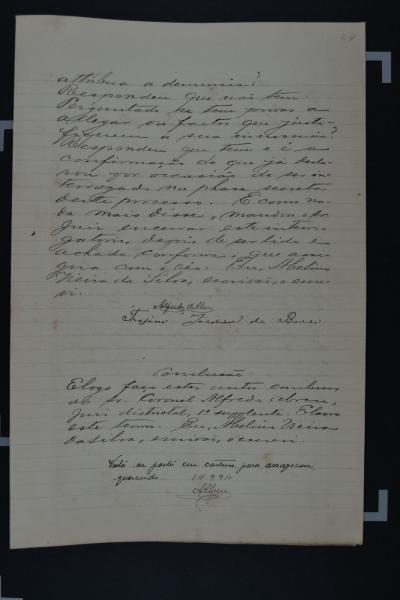 24
attribua a denuncia?
Respondeu que não tem.
Perguntado se tem provas a
allegar ou factos que justi-
fiquem a sua innocencia?
Respondeu que tem e é a
confirmação do que já decla-
rou por occasião de ser in-
terrogado na phase secreta
deste processo. E como na-
da mais disse, mandou o sr.
Juiz encerrar este interro-
gatorio, depois de ser lido e
achado conforme, que assi-
gna com o réo. Eu, Abelino
Vieira da Silva, escrivão, o escre-
vi.
Alfredo Abreu
Trajano de Barros
Conclusão
E logo faço estes autos conclusos
ao Sr. Coronel Alfredo Abreu,
Juiz districtal, 1º supplente. E lavro
este termo. Eu, Abelino Vieira
da Silva, escrivão, o escrevi.
Vista as partes em cartorio, para arrazoarem
querendo.
Abreu